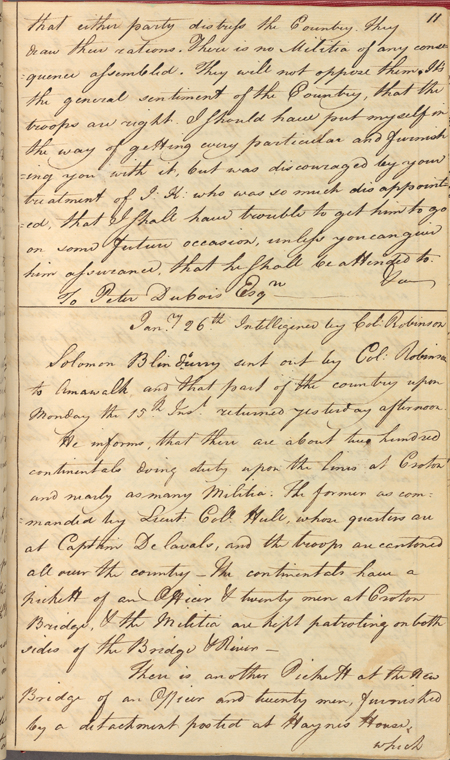 11
that either party distress the Country. They
draw their rations. There is no Militia of any conse
=quence assembled. They will not oppose them. It's
the general sentiment of the Country, that the
troops are right. I should have put myself in
the way of getting every particular and furnish
=ing you with it, but was discouraged by your
treatment of J: K: who was so much disappoint
=ed, that I shall have trouble to get him to go
on some future occasion, unless you can give
him assurance, that he shall be attended to.
To Peter DuBois Esqr
Jany 26th Intelligence by Col: Robinson
Solomon sent out by Col: Robinson
to Amawalk and that part of the country upon
Monday the 15th Ins: returned yesterday afternoon.
He informs, that there are about two hundred
continentals doing duty upon the lines at Croton
and nearly as many Militia. The former as com:
=manded by Lieut: Coll Hull, whose quarters are
at Captain Delavals, and the troops are cantoned
all over the country _ The continentals have a
Pickett of an Officer & twenty men at Croton
Bridge, & the Militia are kept patroling on both
sides of the Bridge & River _
There is another Pickett at the New
Bridge of an Officer and twenty men, furnished
by a detachment posted at Haynes House,
which